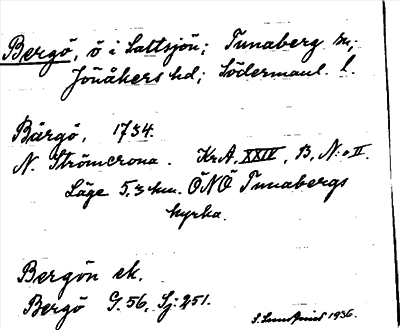 Bergö, ö i Sattsjön; Tunaberg sn;
Jönåkers hd; Södermanl. l.
Bärgö, 1734.
N. Strömcrona. KrA, XXIV, B, N:o II.
Läge 5,3 km. ÖNÖ Tunabergs
kyrka.
Bergön ek.
Bergö G. 56, Sj: 251.
S. Lundquist 1936.